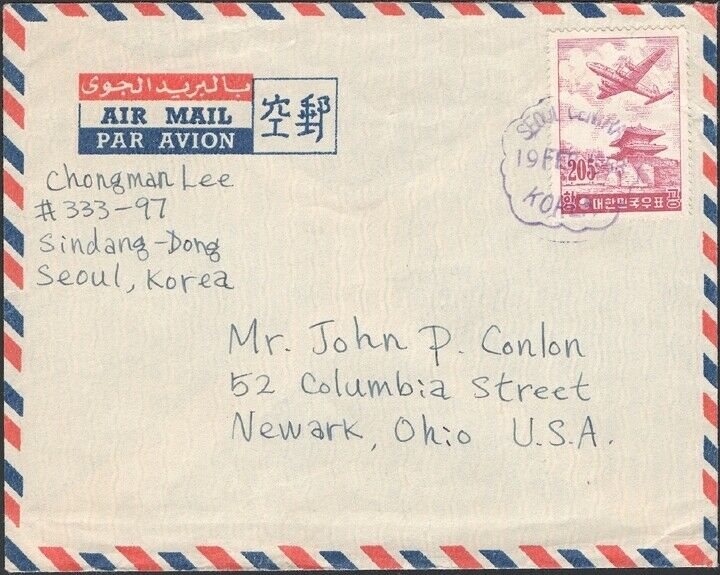 بالبريد الجوى
AIR MAIL
PAR AVION
空郵
Chongman Lee
#333-97
Sindang-Dong
Seoul, Korea
SEOUL
19 FEB
KOREA
205
항공
대한민국우표
Mr. John P. Conlon
52 Columbia Street
Newark, Ohio U.S.A.